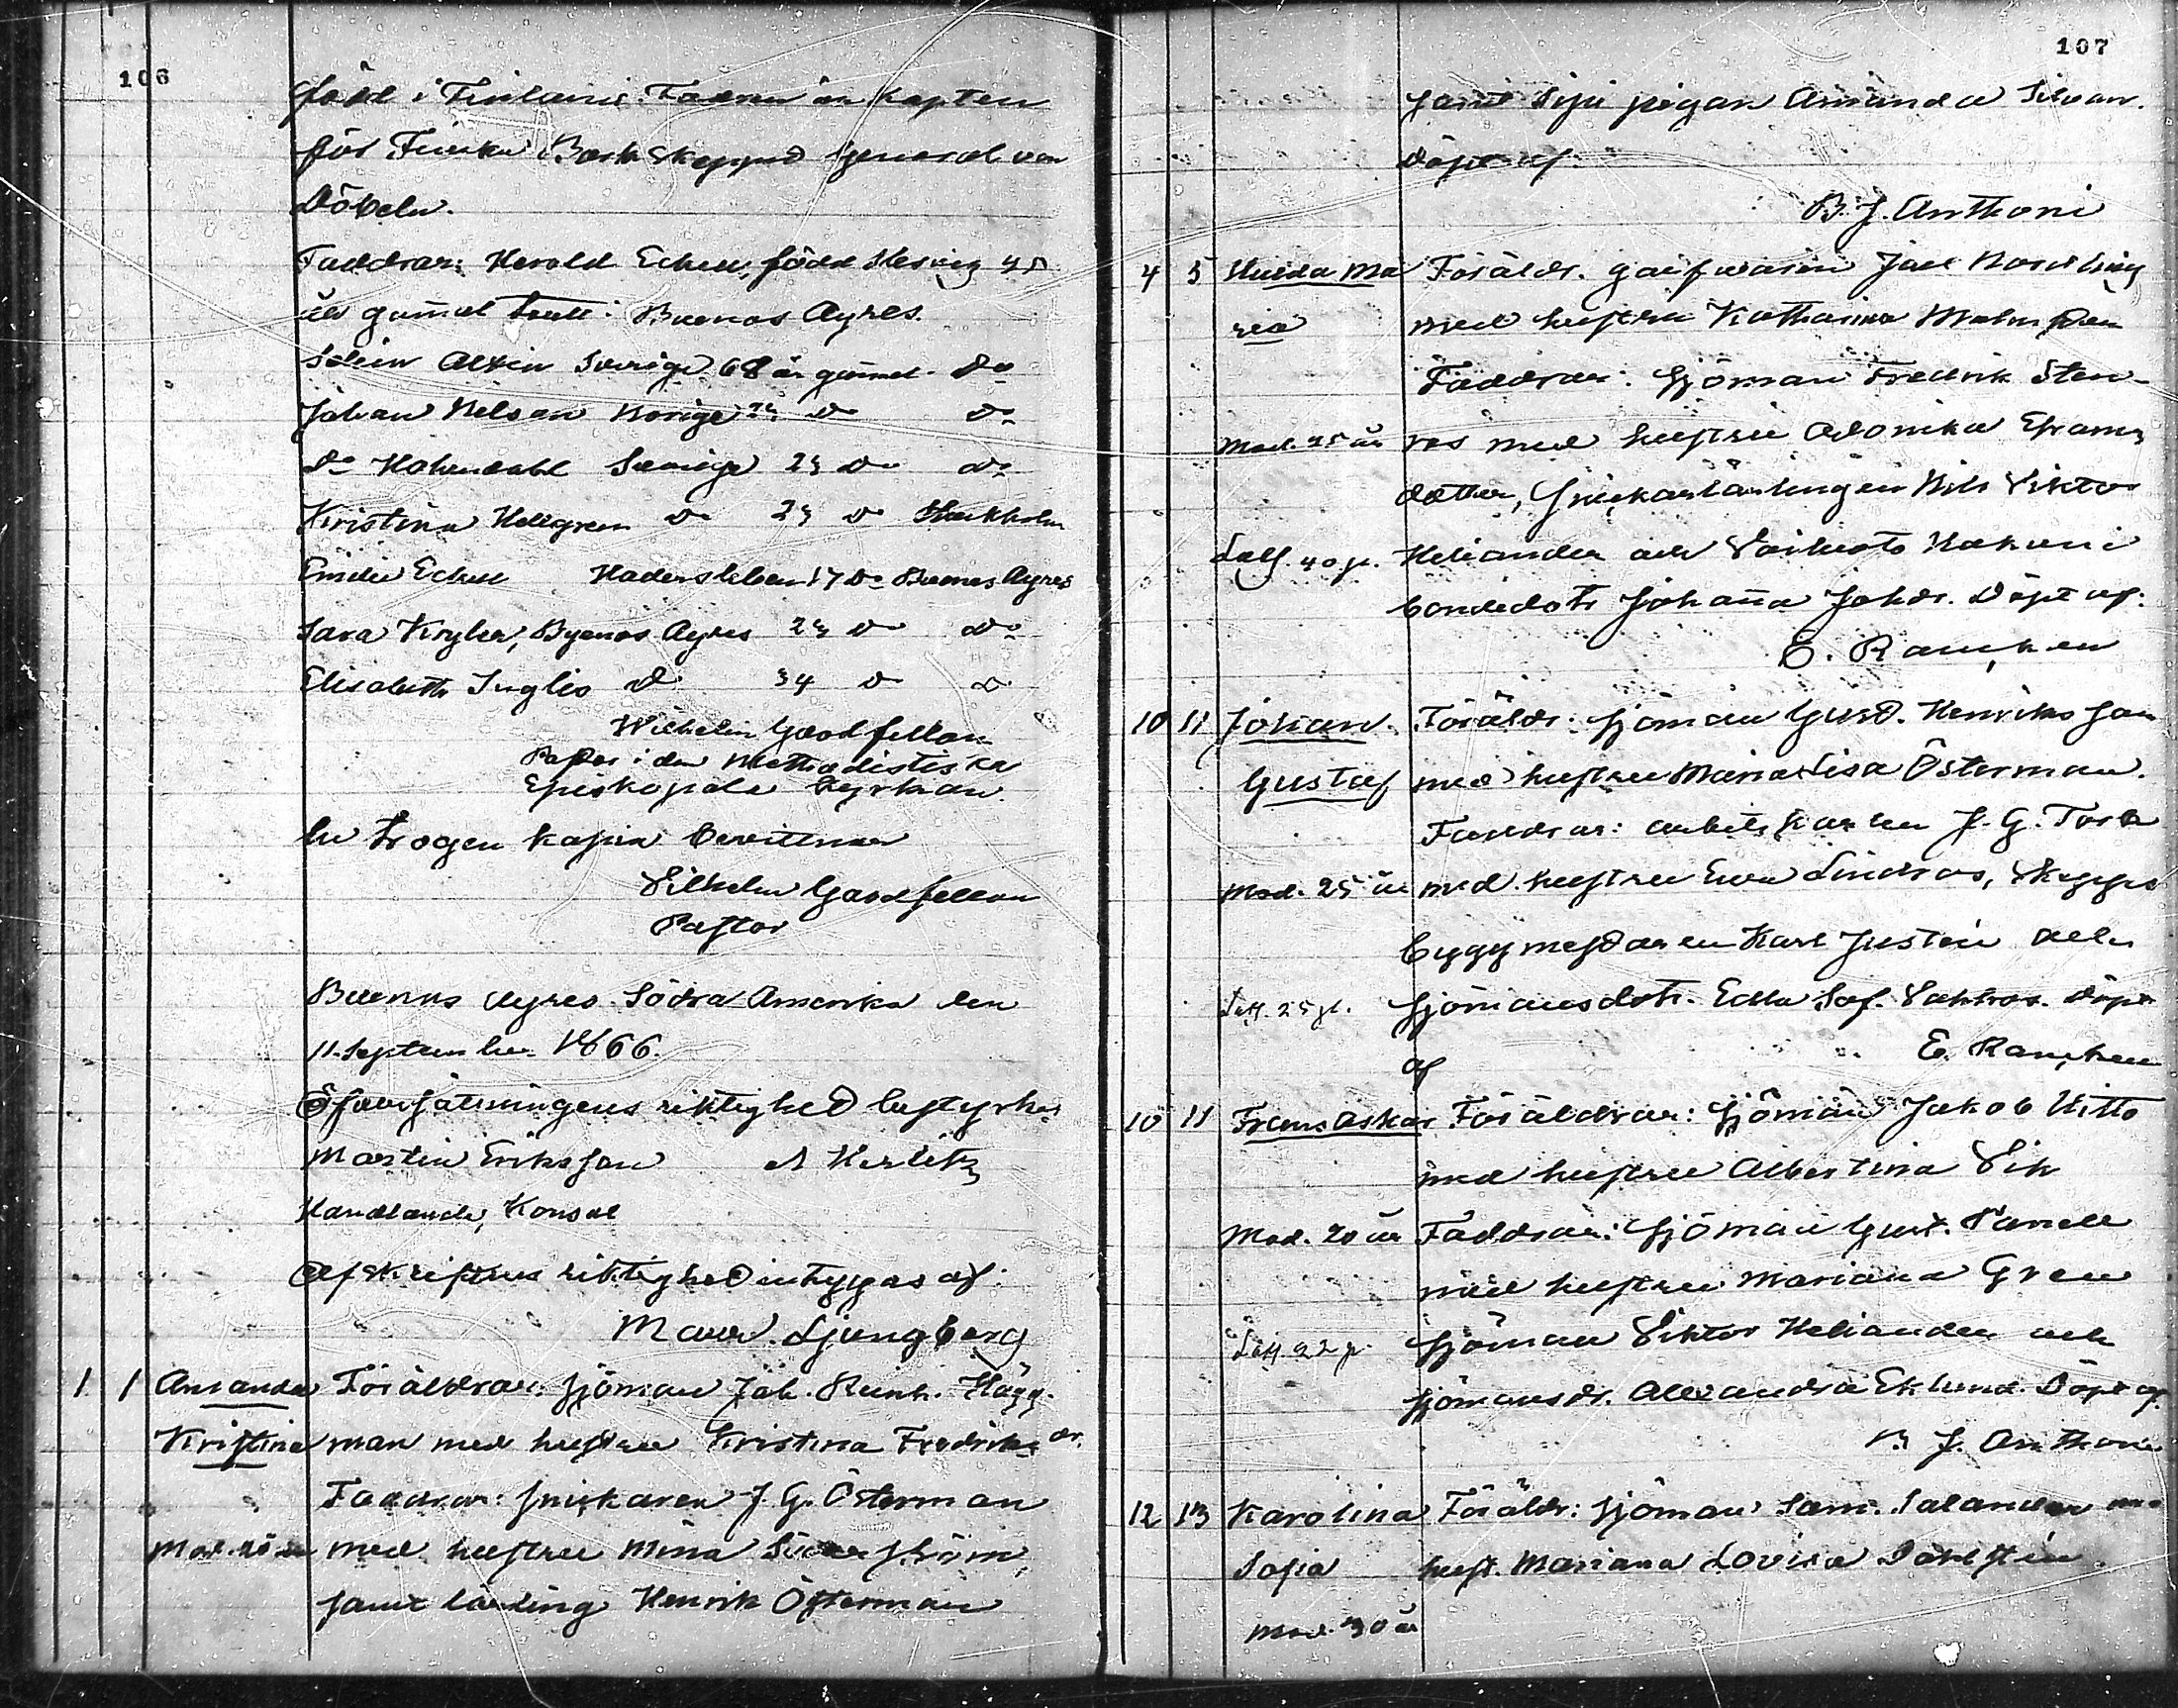 106
född i Finland. Fadren är kapten
för Finska Barkskeppet General von
Döbeln.
Faddrar: Herold Eckell, född Slesvig 45
års gammal bratt: Buenos Ayres.
Alvin Sverige 68 år gammal Do
Johan Nelson Norige 24 Do Do
Do Holmdahl Sverige 23 Do Do
Kristina Hellgren Do 23 Do Stockholm
Emilie Eckell Hadersleben 17 Do Buenos Ayres
Sara Kryler, Byenos Ayres 23 Do Do
Elisabeth Inglis Do 34 Do Do
Wilhelm Goodfellow
Pastor i den Methodistiska
Episkopala Kyrkan.
En trogen kopia bevittnar
Vilhelm Goodfellow
Pastor
Buenos Ayres Södra Amerika den
11 September 1866.
Öfversättningens riktighet bestyrkes
Martin Eriksson A Herlitz
Handlande, Konsul
Afskriftens riktighet intygas af:
Maur. Ljungberg
1 1 Amanda Föräldrar: Sjöman Joh. Reinh. Hägg-
Kristina man med hustru Kristina Fredriksdr.
Faddrar: Snickaren J. G. Österman
Mod. år med hustru Mina Söderström,
samt lärling Henrik Österman
107
samt pigan Amanda Silvan.
Döpt af:
B. J. Anthoni
4 5 Hulda Ma Föräldr. garfvaren Joel Nordling
ria med hustru Katharina Malmsten
Faddrar: Sjöman Fredrik Sten-
Mod. 25 år ros med hustru Adonika Efraims
dotter, Snickarlärlingen Nils Viktor
Dass. 40 p. Helianden och
bondedotr Johanna Johdr. Döpt af:
E. Rancken
10 11 Johan Föräldr: Sjöman Gust. Henriksson
Gustaf med hustru Maria Lisa Österman.
Faddrar: arbetskarlen J. G. Torck
Mod. 25 år med hustru Eva Lindros, Skepps
byggmestaren Karl Justén och
25 p. Sjömansdotr. Edla Sof. Döpt
af E. Rancken
10 11 Frans Oskar Föräldrar: Sjöman Jakob Hitto
med hustru Albertina Vik
Mod. 20 år Faddrar: Sjöman Gust.
med hustru Mariana Gren
22 p. Sjöman Viktor Helianden och
Sjömansdr. Alexandra Eklund. Döpt af.
B J. Anthoni
12 13 Karolina Föräldr: Sjöman Sam. Salander med
Sofia hust. Mariana Lovisa Dahlsten
Mod. 30 år